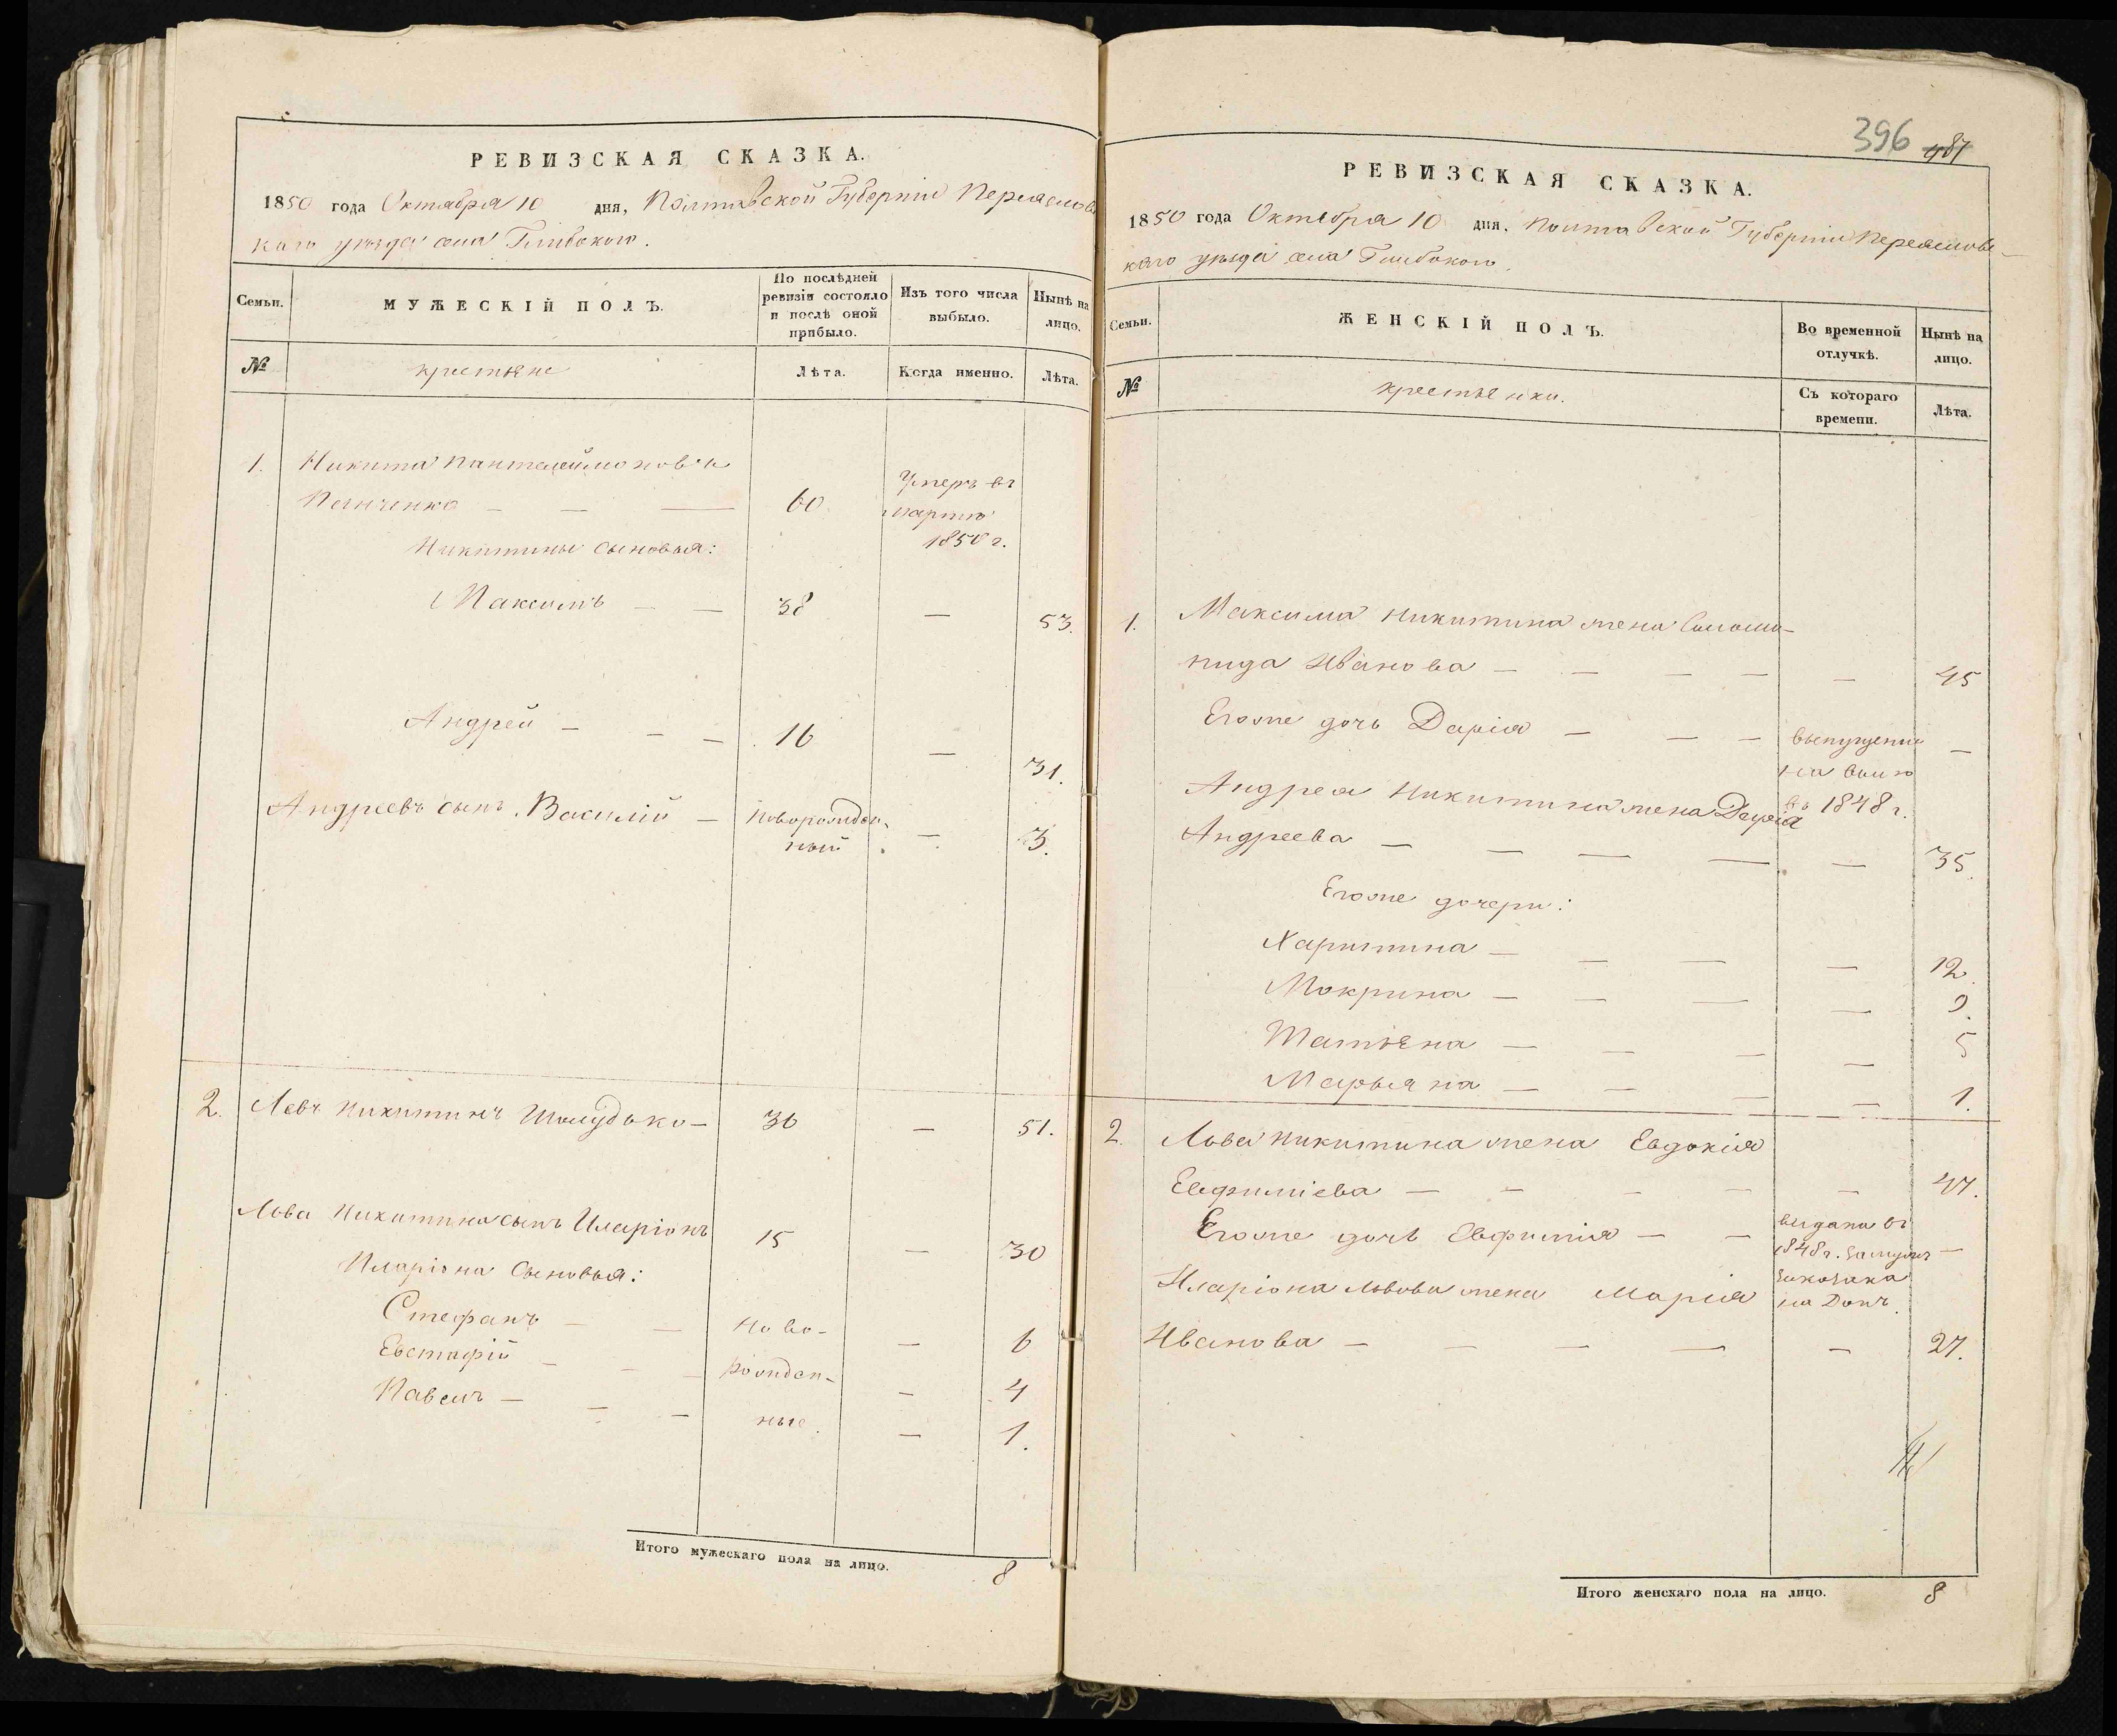 РЕВИЗСКАЯ СКАЗКА.
1850 года Октября 10 дня, Полтавской Губерніи Переяслов
каго уезда села Глибокого.
Семьи. МУЖЕСКІЙ ПОЛЪ. По послѣдней ревизіи состояло и послѣ оной прибыло. Изъ того числа выбыло. Нынѣ на лицо.
№ крестьяне Лѣта. Когда именно. Лѣта.
1. Никита Пантелеймоновъ
60 Умеръ въ
мартѣ
1850 г.
Никитины сыновья:
Максимъ — — 38 — 53.
Андрей — — — 16 — 31.
Андреевъ сынъ Василій — новорожден-
ный — 3.
2. Левъ Никитинъ Шолудько — 36 — 51.
Лова Никитина сынъ Иларіонъ 15 — 30
Иларіона сыновья:
Стефанъ — — ново- — 6
Евстафій — — — рожден- — 4
Павелъ — — — ные. — 1.
Итого мужескаго пола на лицо. 8
396 487
РЕВИЗСКАЯ СКАЗКА.
1850 года Октября 10 дня, Полтавской Губерніи Переяслов-
каго уезда села Глибокого.
Семьи. ЖЕНСКІЙ ПОЛЪ. Во временной отлучкѣ. Нынѣ на лицо.
№ крестьянки. Съ котораго времени. Лѣта.
1. Максима Никитина жена Соломо-
нида Иванова — — — — — 45
Егоже дочь Дарія — — — выпущена —
на волю
въ 1848 г.
Андрея Никитина жена Дарія
Андреева — — — — — 35.
Егоже дочери:
Харитина — — — — 12.
Мокрина — — — — 9.
Татьяна — — — — 5
Марьяна — — — — 1.
2. Лова Никитина жена Евдокія
Евфиміева — — — — — 47.
Егоже дочь Евфимія — — выдана въ
1848 г. замужъ —
за козака
на Донъ.
Иларіона Львова жена Марія
Иванова — — — — — 27.
Итого женскаго пола на лицо. 8